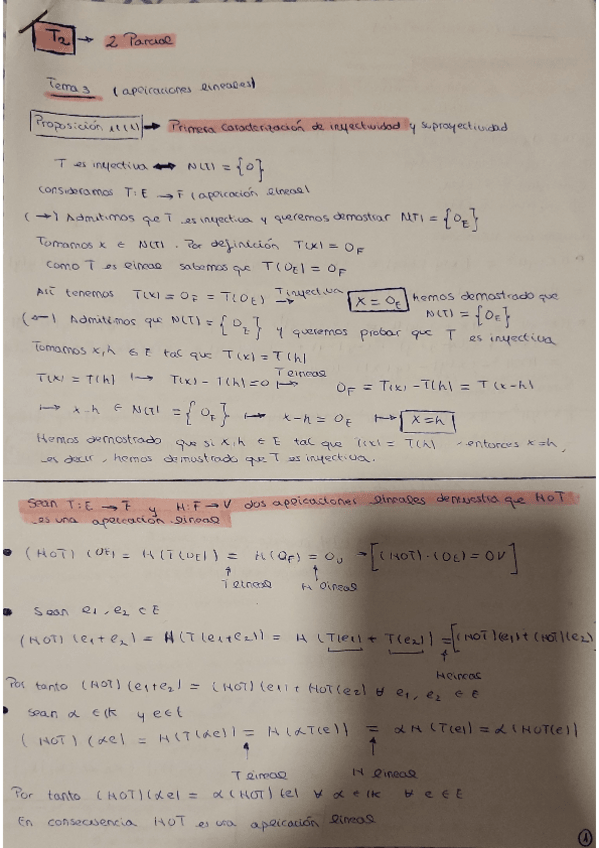 T2 → 2 Parcial
Tema 3 (aplicaciones lineales)
Proposición 11(1) → Primera caracterización de inyectividad y suprayectividad
T es inyectiva ↔ N(T) = {0}
consideramos T: E → F (aplicación lineal)
(→) Admitimos que T es inyectiva y queremos demostrar N(T) = {0_E}
Tomamos x ∈ N(T). Por definición T(x) = 0_F
como T es lineal sabemos que T(0_E) = 0_F
Así tenemos T(x) = 0_F = T(0_E) T inyectiva → x = 0_E hemos demostrado que N(T) = {0_E}
(←) Admitimos que N(T) = {0_E} y queremos probar que T es inyectiva
Tomamos x, h ∈ E tal que T(x) = T(h)
T(x) = T(h) ↦ T(x) - T(h) = 0 T lineal ↦ 0_F = T(x) - T(h) = T(x-h)
↦ x-h ∈ N(T) = {0_E} ↦ x-h = 0_E ↦ x = h
Hemos demostrado que si x, h ∈ E tal que T(x) = T(h) entonces x = h,
es decir, hemos demostrado que T es inyectiva.
Sean T: E → F y H: F → V dos aplicaciones lineales demuestra que HoT
es una aplicación lineal
• (HoT)(0_E) = H(T(0_E)) = H(0_F) = 0_V → [(HoT)·(0_E) = 0V]
T lineal H lineal
• Sean e1, e2 ∈ E
(HoT)(e1+e2) = H(T(e1+e2)) = H(T(e1) + T(e2)) = [(HoT)(e1) + (HoT)(e2)
H lineal
Por tanto (HoT)(e1+e2) = (HoT)(e1) + HoT(e2) ∀ e1, e2 ∈ E
• Sean α ∈ K y e ∈ E
(HoT)(αe) = H(T(αe)) = H(αT(e)) = αH(T(e)) = α(HoT(e))
T lineal H lineal
Por tanto (HoT)(αe) = α(HoT)(e) ∀ α ∈ K ∀ e ∈ E
En consecuencia HoT es una aplicación lineal
1